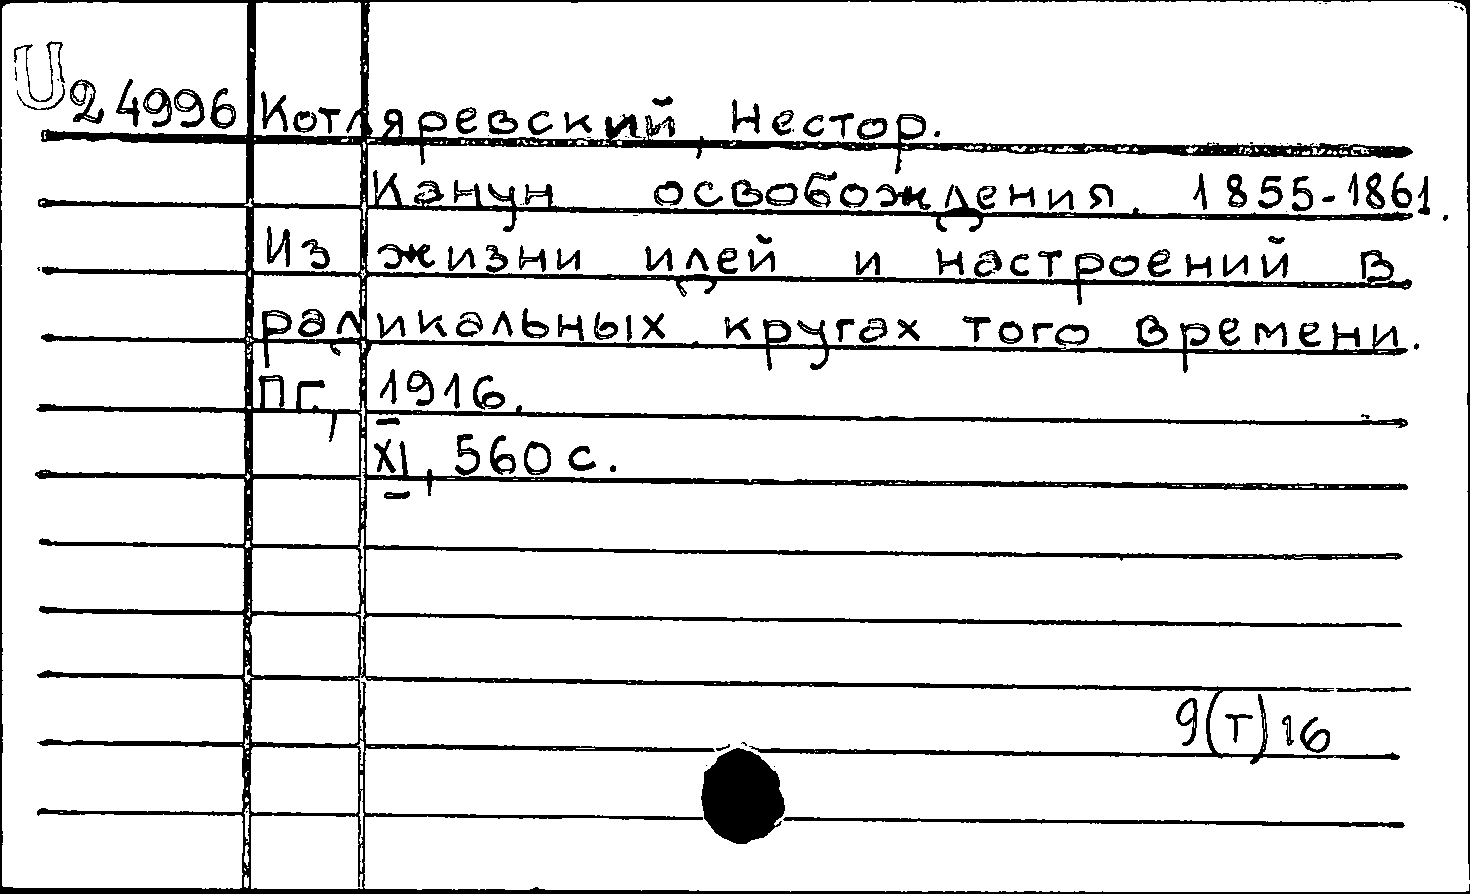 U 24996 Котляревский, Нестор.
Канун освобождения. 1855-1861.
Из жизни идей и настроений в
радикальных кругах того времени.
ПГ., 1916.
XI, 560 с.
9(Т)16